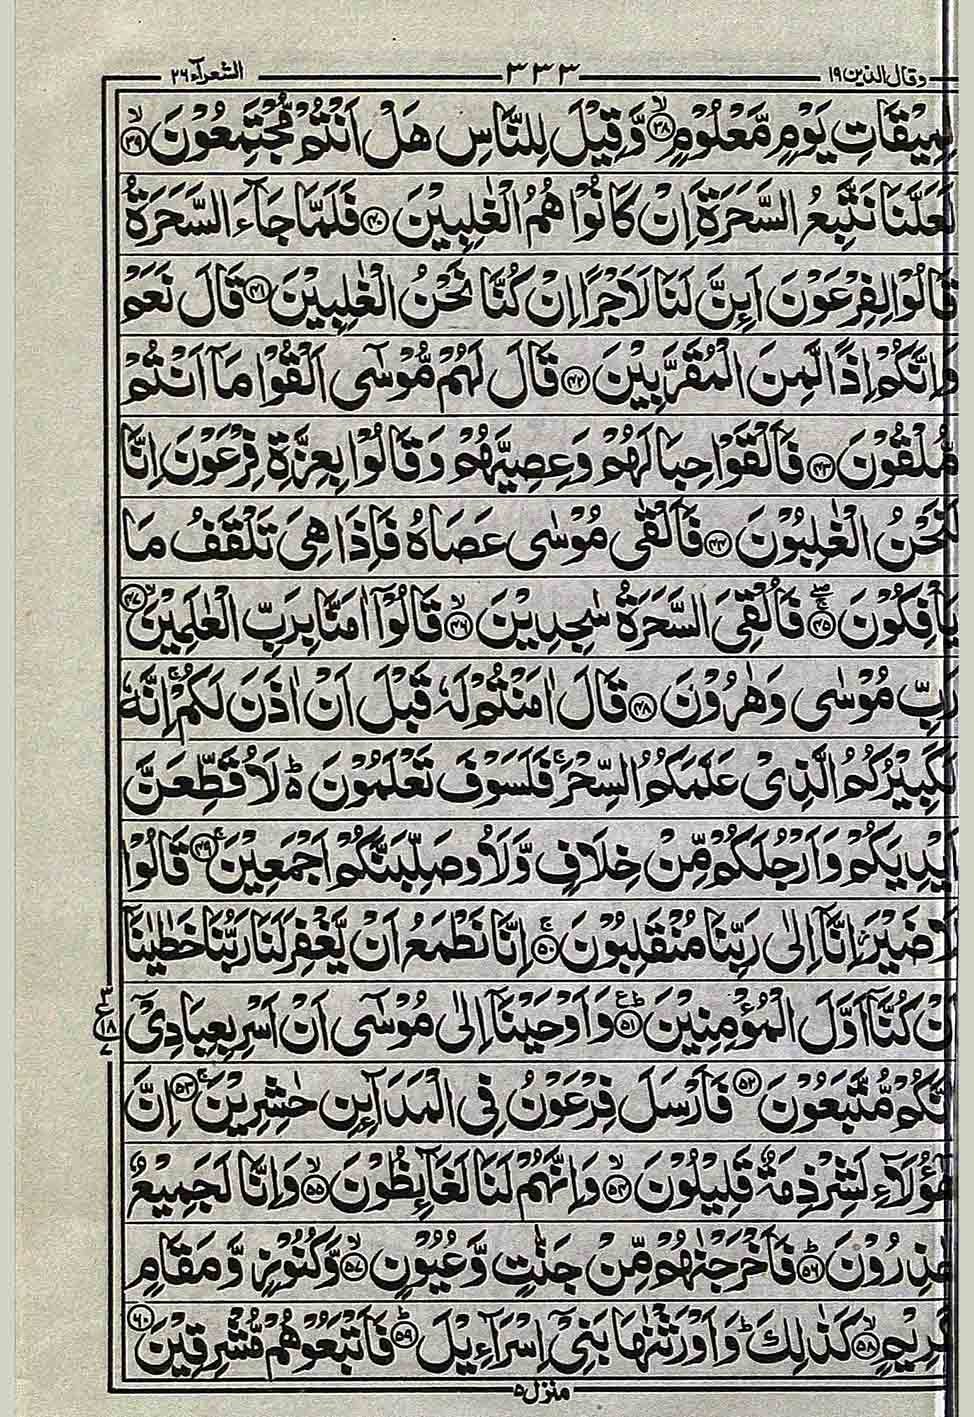 وقال الذين ۱۹ ۳۳۳ الشعرآء ۲۶
لِمِيْقَاتِ يَوْمٍ مَّعْلُوْمٍ ﴿۳۸﴾ وَّقِيْلَ لِلنَّاسِ هَلْ اَنْتُمْ مُّجْتَمِعُوْنَ ﴿۳۹﴾
لَعَلَّنَا نَتَّبِعُ السَّحَرَةَ اِنْ كَانُوْا هُمُ الْغٰلِبِيْنَ ﴿۴۰﴾ فَلَمَّا جَآءَ السَّحَرَةُ
قَالُوْا لِفِرْعَوْنَ اَئِنَّ لَنَا لَاَجْرًا اِنْ كُنَّا نَحْنُ الْغٰلِبِيْنَ ﴿۴۱﴾ قَالَ نَعَمْ
وَاِنَّكُمْ اِذًا لَّمِنَ الْمُقَرَّبِيْنَ ﴿۴۲﴾ قَالَ لَهُمْ مُّوْسٰٓى اَلْقُوْا مَآ اَنْتُمْ
مُّلْقُوْنَ ﴿۴۳﴾ فَاَلْقَوْا حِبَالَهُمْ وَعِصِيَّهُمْ وَقَالُوْا بِعِزَّةِ فِرْعَوْنَ اِنَّا
لَنَحْنُ الْغٰلِبُوْنَ ﴿۴۴﴾ فَاَلْقٰى مُوْسٰى عَصَاهُ فَاِذَا هِيَ تَلْقَفُ مَا
يَاْفِكُوْنَ ﴿۴۵﴾ فَاُلْقِيَ السَّحَرَةُ سٰجِدِيْنَ ﴿۴۶﴾ قَالُوْٓا اٰمَنَّا بِرَبِّ الْعٰلَمِيْنَ ﴿۴۷﴾
رَبِّ مُوْسٰى وَهٰرُوْنَ ﴿۴۸﴾ قَالَ اٰمَنْتُمْ لَهٗ قَبْلَ اَنْ اٰذَنَ لَكُمْ ۚ اِنَّهٗ
لَكَبِيْرُكُمُ الَّذِيْ عَلَّمَكُمُ السِّحْرَ ۚ فَلَسَوْفَ تَعْلَمُوْنَ ؕ لَاُقَطِّعَنَّ
اَيْدِيَكُمْ وَاَرْجُلَكُمْ مِّنْ خِلَافٍ وَّلَاُوصَلِّبَنَّكُمْ اَجْمَعِيْنَ ﴿۴۹﴾ قَالُوْا
لَا ضَيْرَ ؗ اِنَّآ اِلٰى رَبِّنَا مُنْقَلِبُوْنَ ﴿۵۰﴾ اِنَّا نَطْمَعُ اَنْ يَّغْفِرَ لَنَا رَبُّنَا خَطٰيٰنَآ
اَنْ كُنَّآ اَوَّلَ الْمُؤْمِنِيْنَ ﴿۵۱﴾ وَاَوْحَيْنَآ اِلٰى مُوْسٰٓى اَنْ اَسْرِ بِعِبَادِيْٓ
اِنَّكُمْ مُّتَّبَعُوْنَ ﴿۵۲﴾ فَاَرْسَلَ فِرْعَوْنُ فِي الْمَدَآئِنِ حٰشِرِيْنَ ﴿۵۳﴾ اِنَّ
هٰٓؤُلَآءِ لَشِرْذِمَةٌ قَلِيْلُوْنَ ﴿۵۴﴾ وَاِنَّهُمْ لَنَا لَغَآئِظُوْنَ ﴿۵۵﴾ وَاِنَّا لَجَمِيْعٌ
حٰذِرُوْنَ ﴿۵۶﴾ فَاَخْرَجْنٰهُمْ مِّنْ جَنّٰتٍ وَّعُيُوْنٍ ﴿۵۷﴾ وَّكُنُوْزٍ وَّمَقَامٍ
كَرِيْمٍ ﴿۵۸﴾ كَذٰلِكَ ؕ وَاَوْرَثْنٰهَا بَنِيْٓ اِسْرَآءِيْلَ ﴿۵۹﴾ فَاَتْبَعُوْهُمْ مُّشْرِقِيْنَ ﴿۶۰﴾
منزل ۵